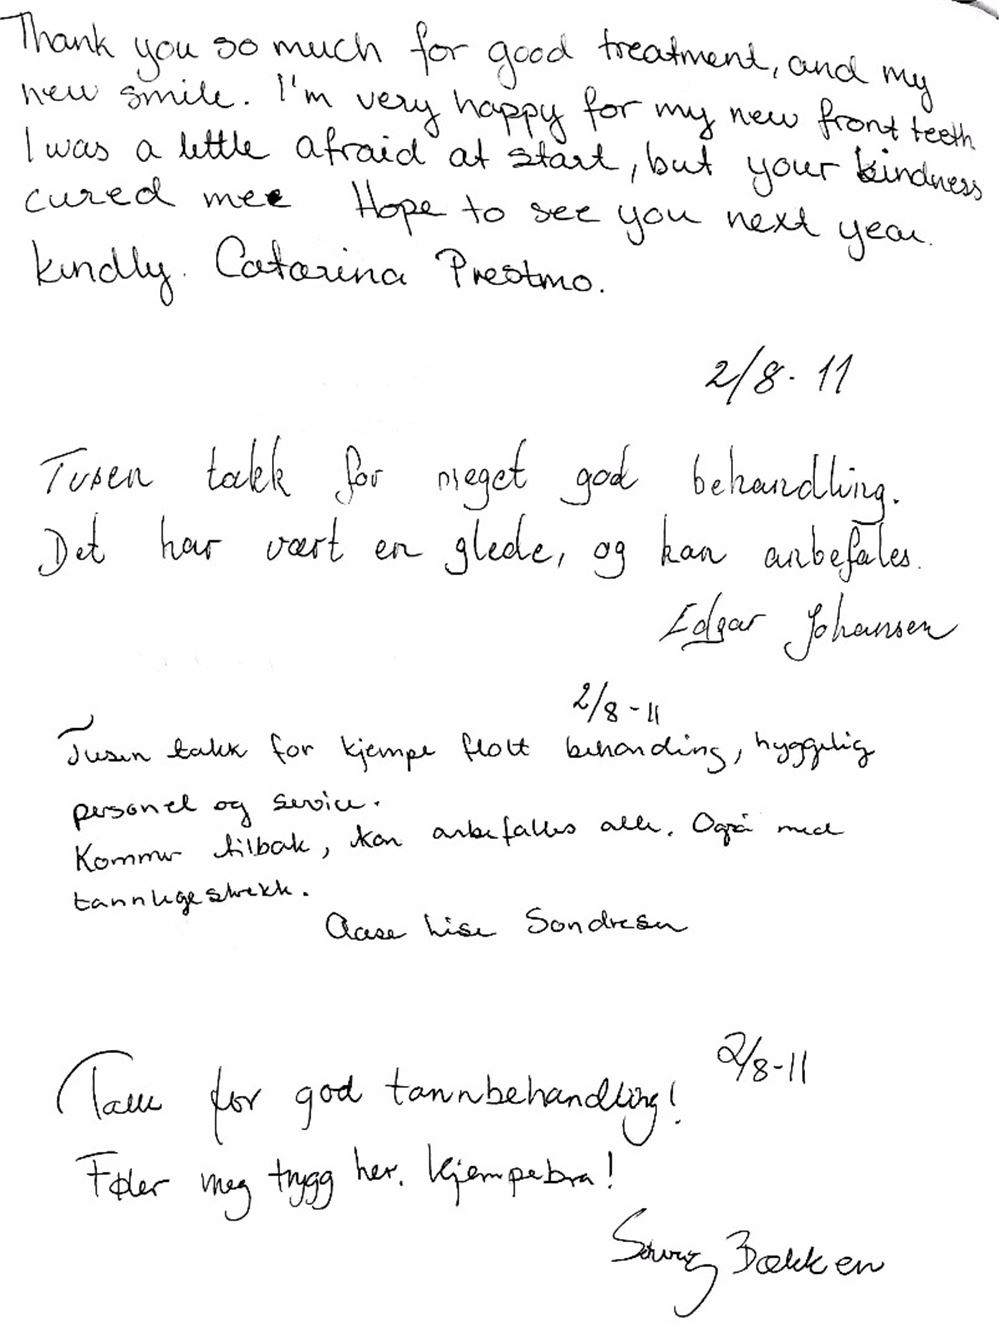 Thank you so much for good treatment, and my
new smile. I'm very happy for my new front teeth
I was a little afraid at start, but your kindness
cured mee Hope to see you next year.
kindly. Catarina Prestmo.
2/8-11
Tusen takk for meget god behandling.
Det har vært en glede, og kan anbefales.
Edgar Johansen
2/8-11
Tusen takk for kjempe flott behanding, hyggelig
personel og service.
Kommer tilbak, kan anbefalles alle. Også med
tannlegeskrekk.
Aase Lise Sondresen
2/8-11
Takk for god tannbehandling!
Føler meg trygg her. Kjempebra!
Bækken